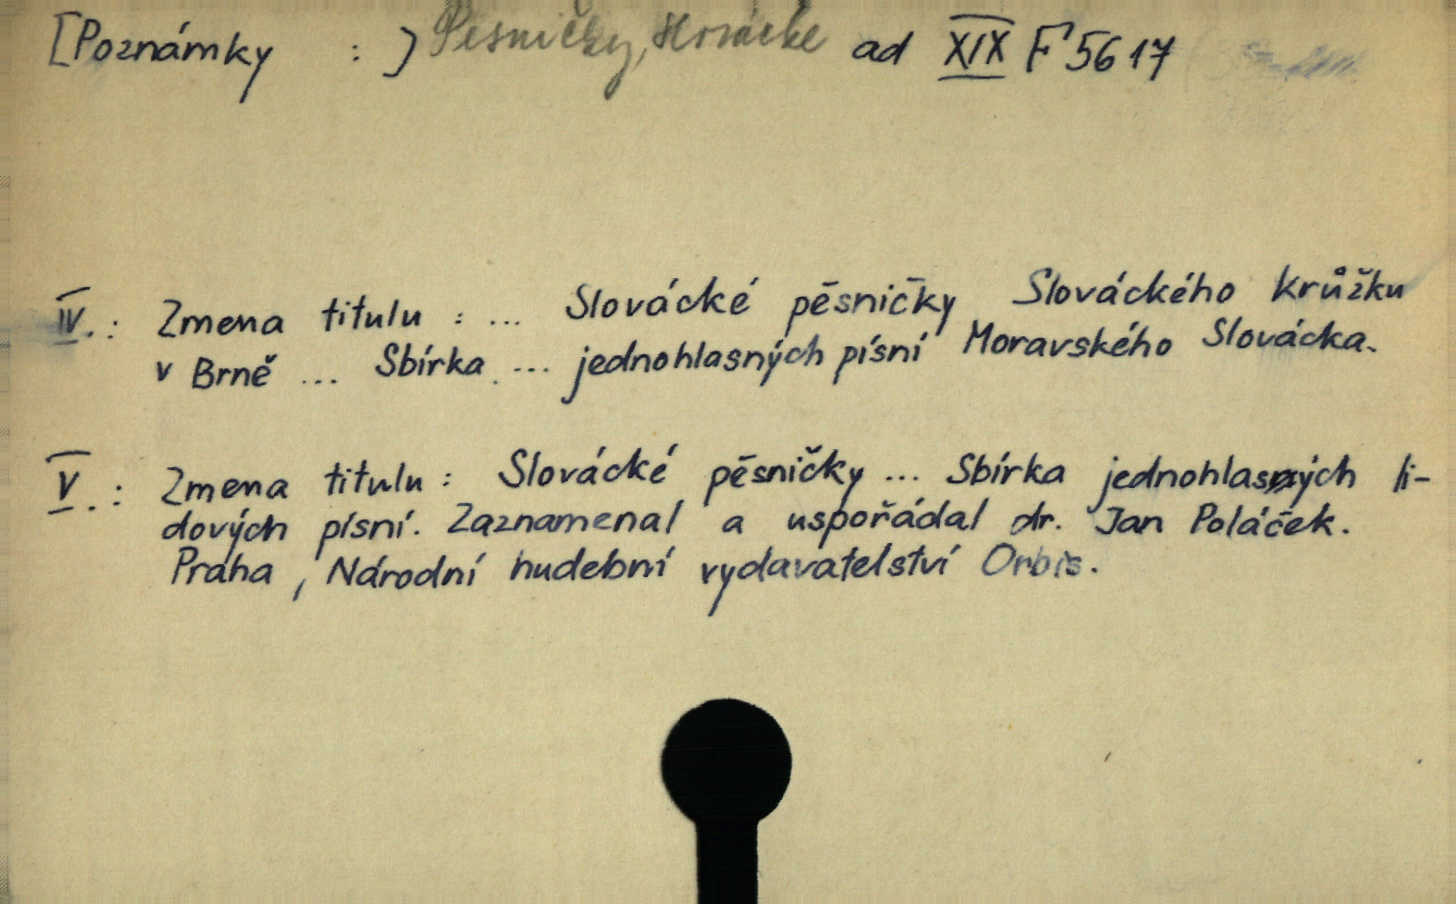 [Poznámky : ] Pěsničky, slovácké ad XIX F 5617
IV.: Zmena titulu : ... Slovácké pěsničky Slováckého krůžku
v Brně ... Sbírka ... jednohlasných písní Moravského Slovácka.
V.: Zmena titulu : Slovácké pěsničky ... Sbírka jednohlasných li-
dových písní. Zaznamenal a uspořádal dr. Jan Poláček.
Praha, Národní hudební vydavatelství Orbis.